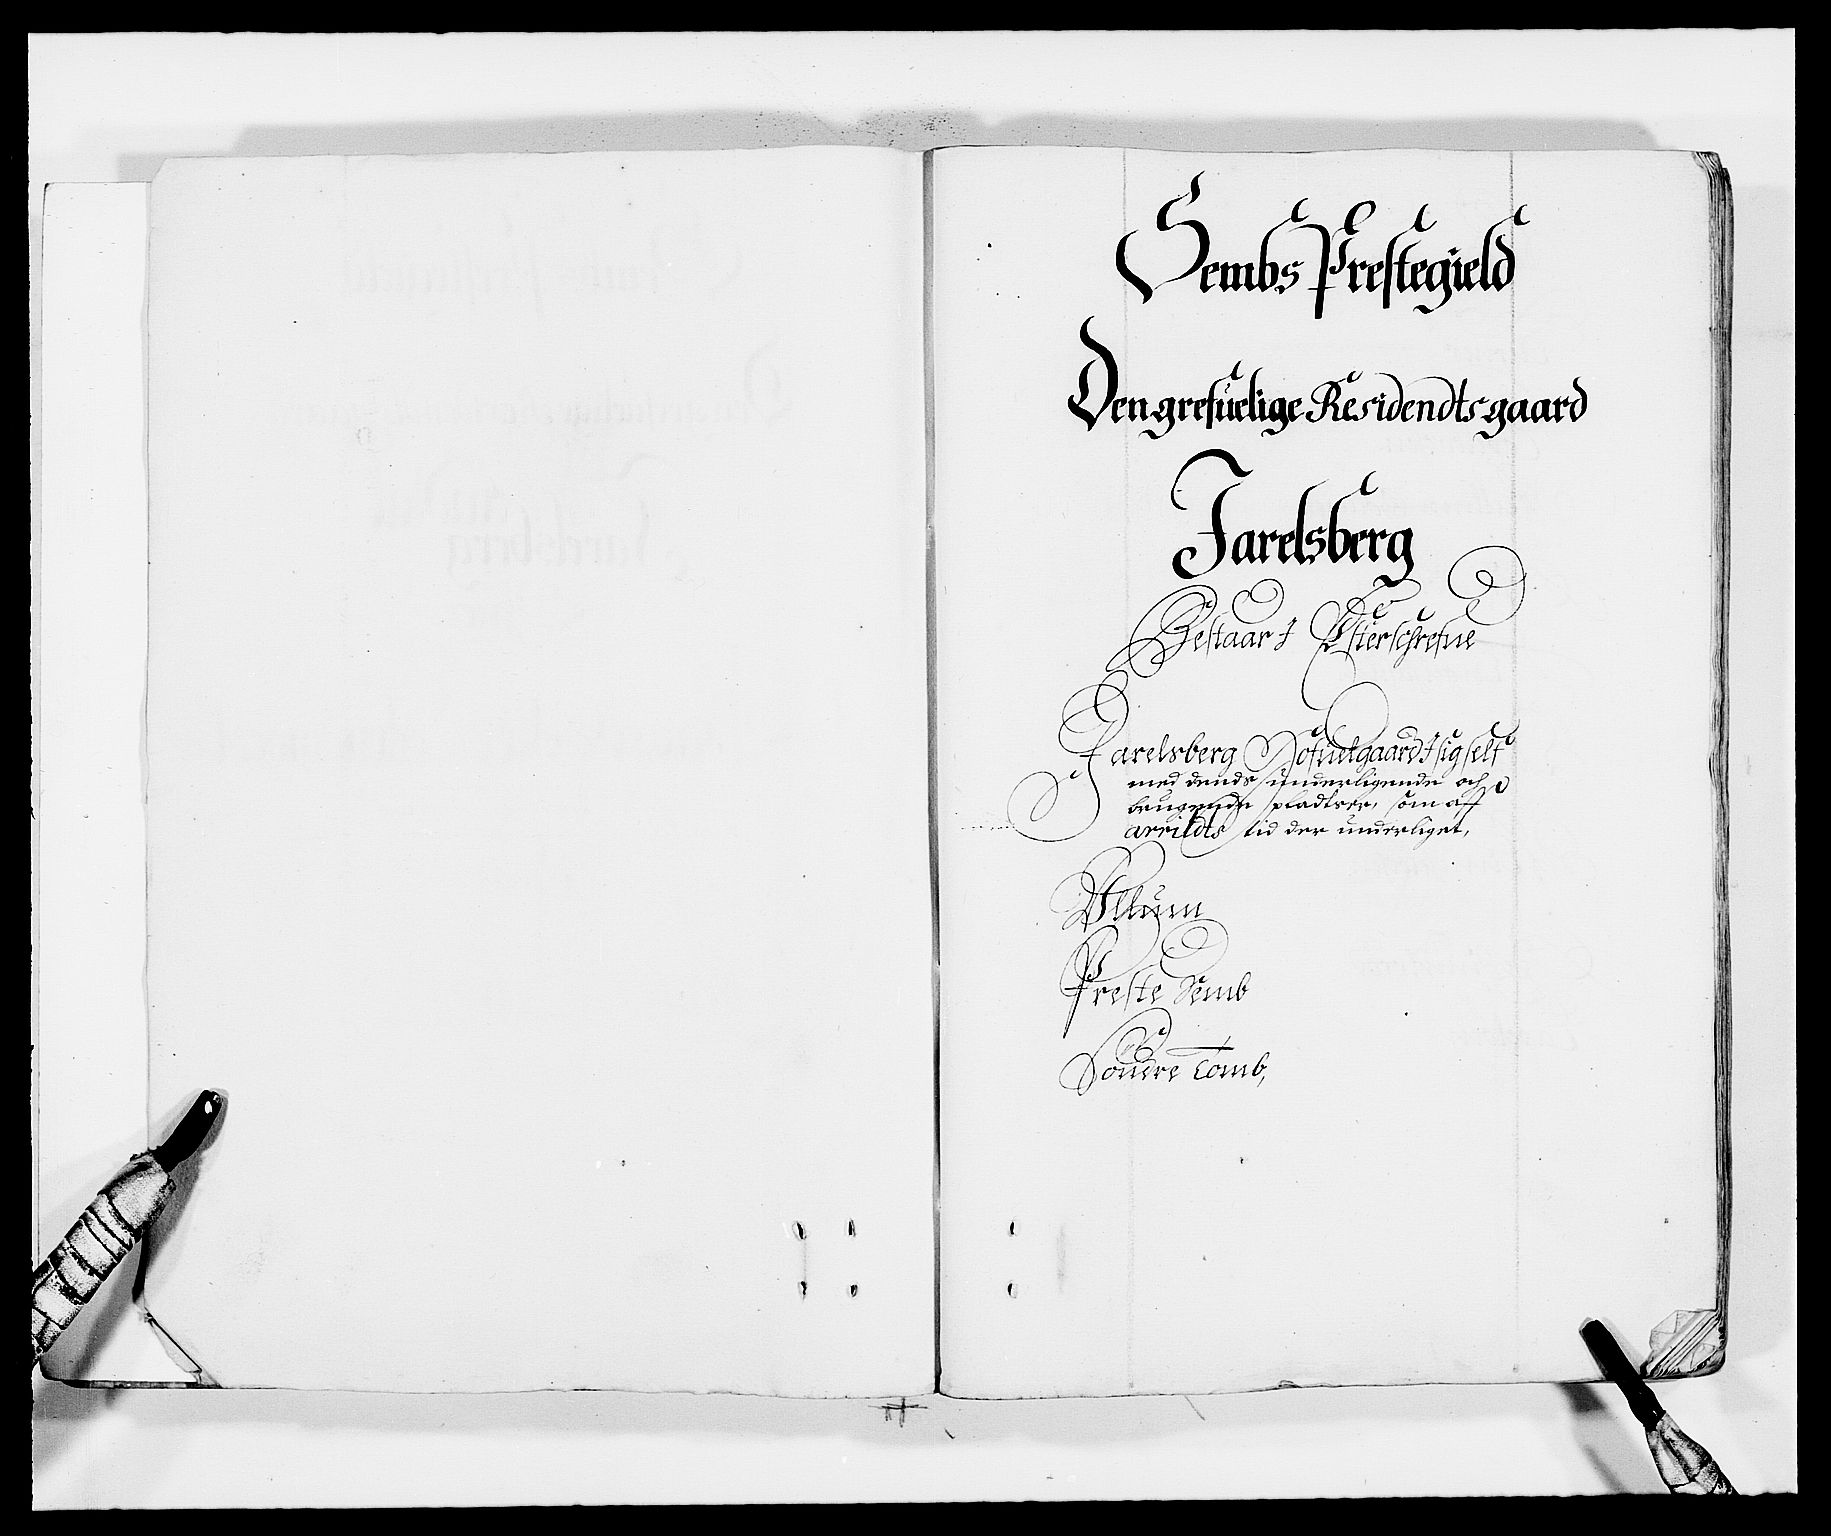 Sembs Prestegield
Den grefuelige Residendtsgaard
Jarelsberg
Bestaar J Effterschrefne
Jarelsberg Hofuetgaard J sig self
med dends underligende och
brugende pladtser, som aff
arrildts tid der underliget,
Ullum
Preste Semb
Søndre Tomb,